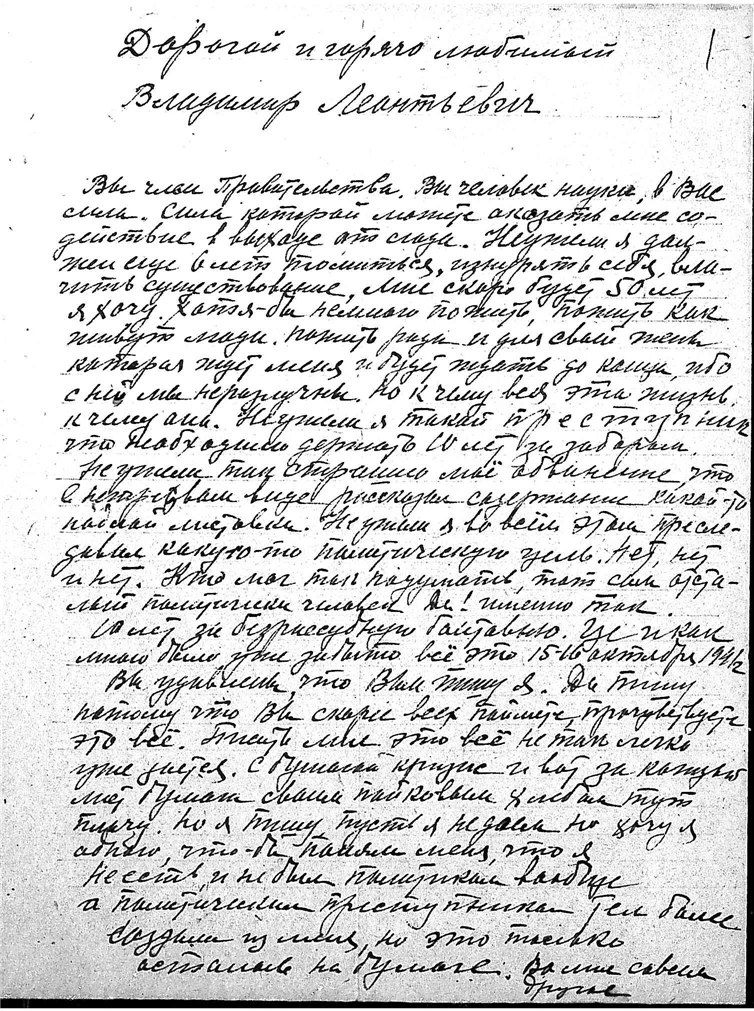 1
Дорогой и горячо любимый
Владимир Леонтьевич
Вы член Правительства. Вы человек науки, в Вас
сила. Сила которой можете оказать мне со-
действие в выходе от сюда. Неужели я дол-
жен еще 6 лет томиться, изнурять себя, вла-
чить существование, мне скоро будет 50 лет
я хочу. Хотя-бы немного пожить, пожить как
живут люди. пожить ради и для своей жены
которая ждет меня и будет ждать до конца, ибо
с ней мы неразлучны. но к чему вся эта жизнь.
к чему она. Неужели я такой преступник
что необходимо держать 10 лет за забором.
Неужели так страшно моё обвинение, что
в нетрезвом виде рассказал содержание какой-то
листовки. Неужели я во всём этом пресле-
довал какую-то политическую цель. Нет, нет
и нет. Кто мог так подумать, тот сам отста-
лый политически человек Да! именно так.
10 лет за безрассудную болтавню. Где и как
мною было уже забыто всё это 15-16 октября 1941 г
Вы удивлены, что Вам пишу я. Да пишу
потому что Вы скорее всех поймете, прочувствуете
это всё. Писать мне это всё не так легко
уже дается. С бумагой кризис и вот за каждый
лист бумаги своим пайковым хлебом тут
плачу. но я пишу, пусть я не доем но хочу я
одного, что-бы поняли меня, что я
не есть, и не был политиком вообще
а политическим преступником тем более
создали из меня, но это только
осталось на бумаге. Во мне совсем
другое